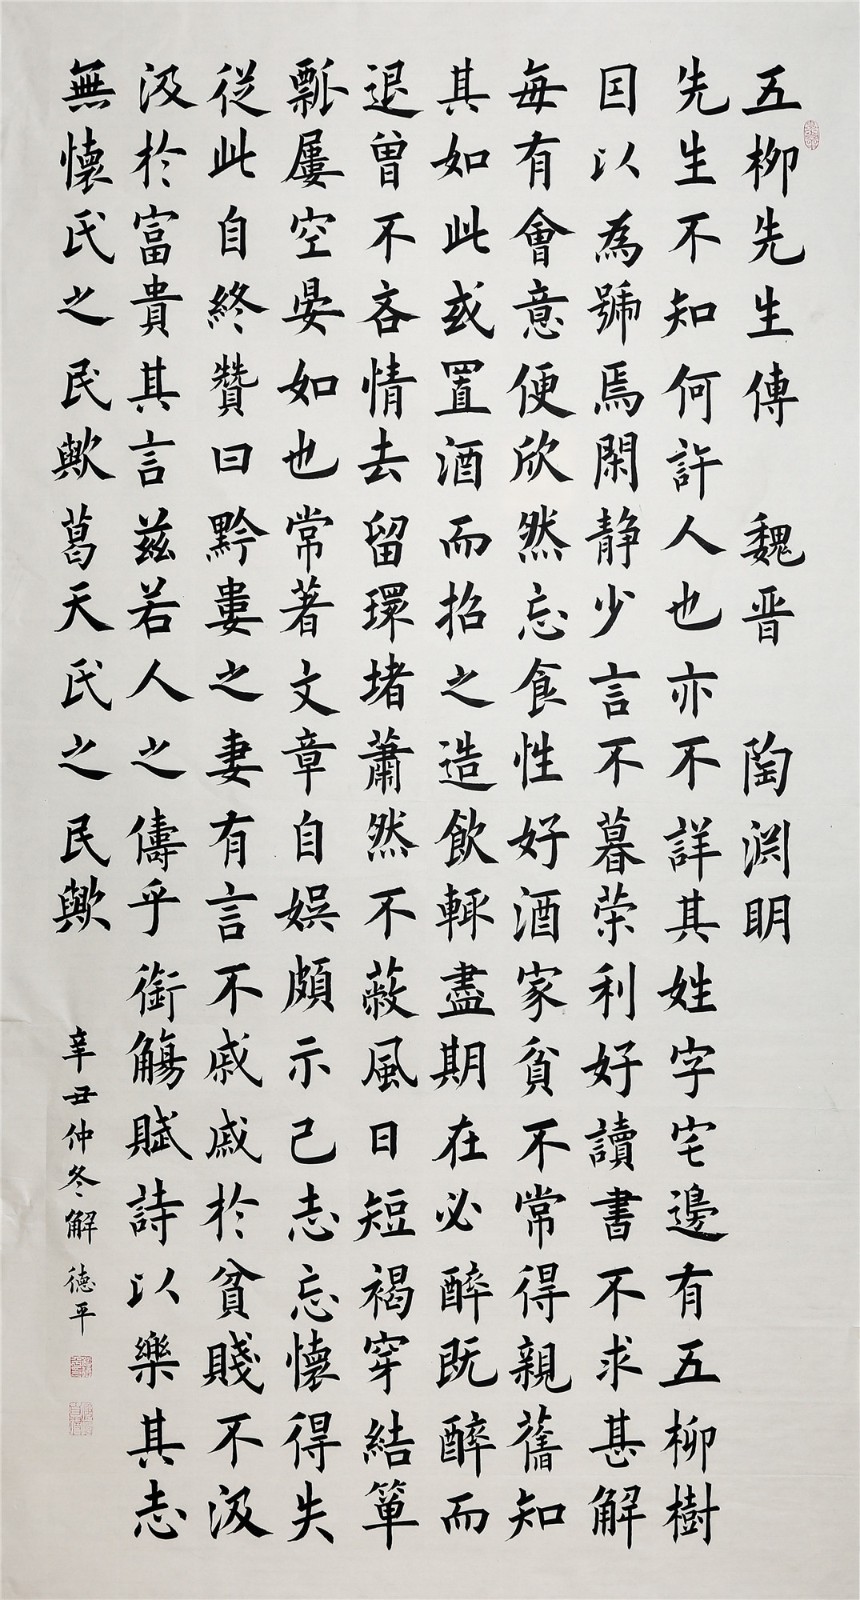 五柳先生傳 魏晋 陶渊明
先生不知何許人也亦不詳其姓字宅邊有五柳樹
因以為號焉閑静少言不暮荣利好讀書不求甚解
每有會意便欣然忘食性好酒家貧不常得親舊知
其如此或置酒而招之造飲輒盡期在必醉既醉而
退曾不吝情去留環堵蕭然不蔽風日短褐穿結簞
瓢屢空晏如也常著文章自娱頗示己志忘懷得失
從此自終贊曰黔婁之妻有言不戚戚於貧賤不汲
汲於富貴其言兹若人之儔乎銜觴賦詩以樂其志
無懷氏之民歟葛天氏之民歟
辛丑仲冬解德平